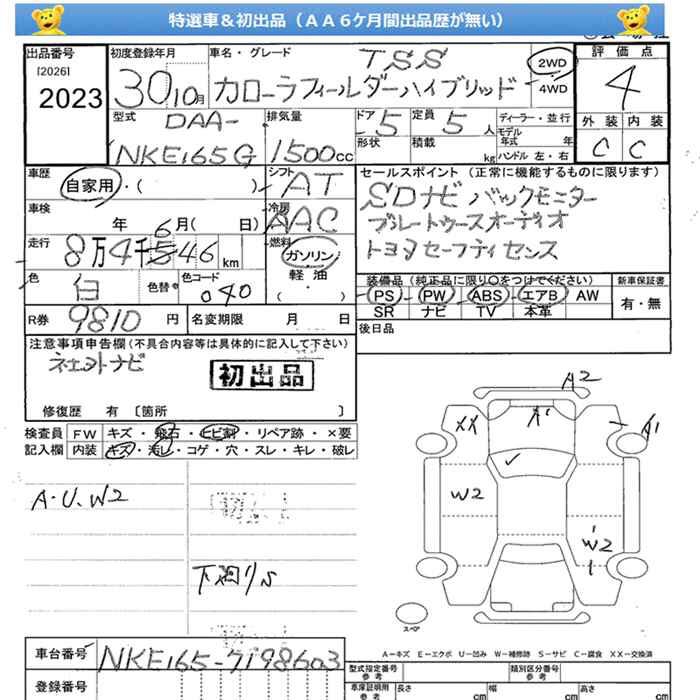 特選車＆初出品（ＡＡ６ケ月間出品歴が無い）
出品番号
[2026]
2023
初度登録年月
30 10月
車名・グレード
TSS
カローラフィールダーハイブリッド
2WD
4WD
評価点
4
外装 内装
C C
型式
DAA-
NKE165G
排気量
1500cc
ドア
5
定員
5人
形状
積載
kg
ディーラー・並行
モデル年式 年
ハンドル 左・右
車歴
自家用・( )
シフト
AT
車検
年 6月( 日)
冷房
AAC
走行
8万4千546km
燃料
ガソリン
軽油
( )
色
白
色替
色コード
040
R券
9810円
名変期限 月 日
セールスポイント（正常に機能するものに限ります）
SDナビ バックモニター
ブルートゥースオーディオ
トヨタセーフティセンス
装備品（純正品に限り〇をつけてください）
PS PW ABS エアB AW
SR ナビ TV 本革
新車保証書
有・無
後日品
注意事項申告欄(不具合内容等は具体的に記入して下さい)
初出品
修復歴 有 〔箇所 〕
検査員
記入欄
FW キズ・飛石・ヒビ割・リペア跡・×要
内装 キズ・汚レ・コゲ・穴・スレ・キレ・破レ
A・U、W2
下廻りS
A2
XX
A1
A1
W2
W2
スペア
A－キズ E－エクボ U－凹み W－補修跡 S－サビ C－腐食 XX－交換済
車台番号
NKE165-7198603
登録番号
型式指定番号
類別区分番号
車庫証明用
長さ cm
幅 cm
高さ cm